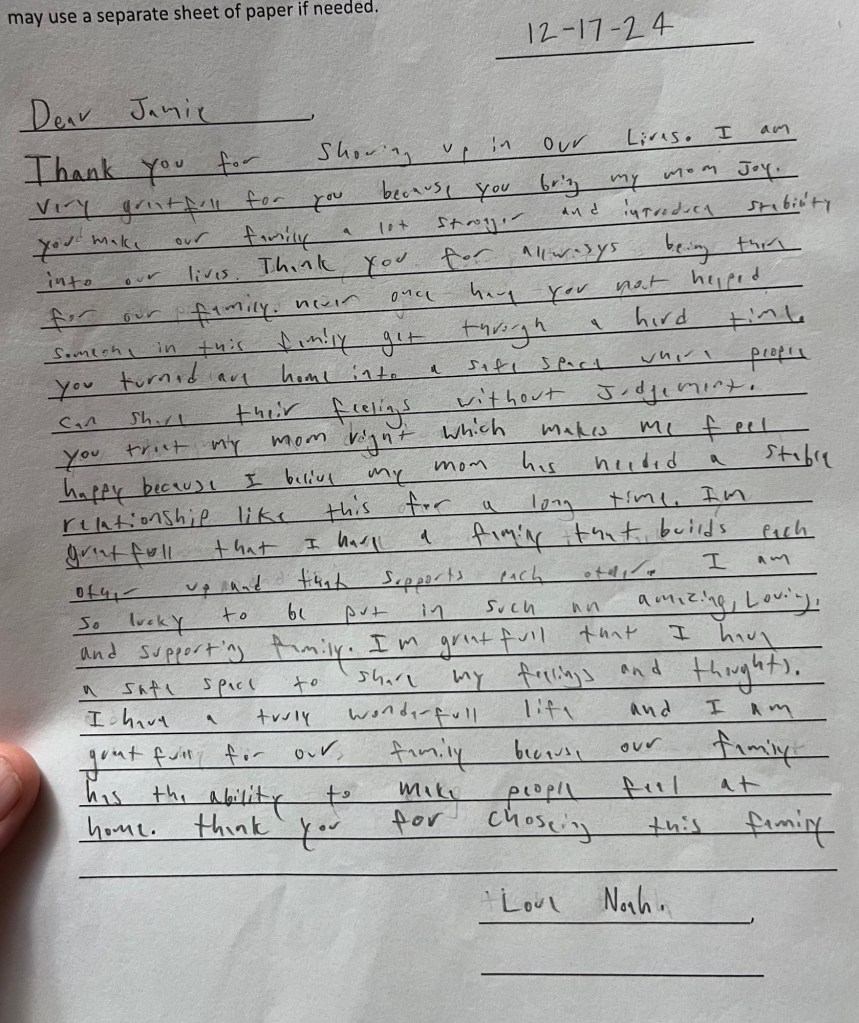 may use a separate sheet of paper if needed.
12-17-24
Dear Jamie,
Thank you for showing up in our lives. I am
very greatfull for you because you bring my mom Joy.
you make our family a lot stronger and introduce stability
into our lives. Thank you for allwasys being there
for our family. never once have you not helped
someone in this family get through a hard time.
you turned are home into a safe space where people
can share their feelings without Judgement.
you treat my mom right which makes me feel
happy because I belive my mom has needed a stable
relationship like this for a long time. Im
greatfull that I have a family that builds each
other up and that supports each other. I am
so lucky to be put in such an amazing, Loving,
and supporting family. Im greatfull that I have
a safe space to share my feelings and thoughts.
I have a truly wonderfull life and I am
greatfull for our family because our family
has the ability to make people feel at
home. thank you for choseing this family
Love Noah.